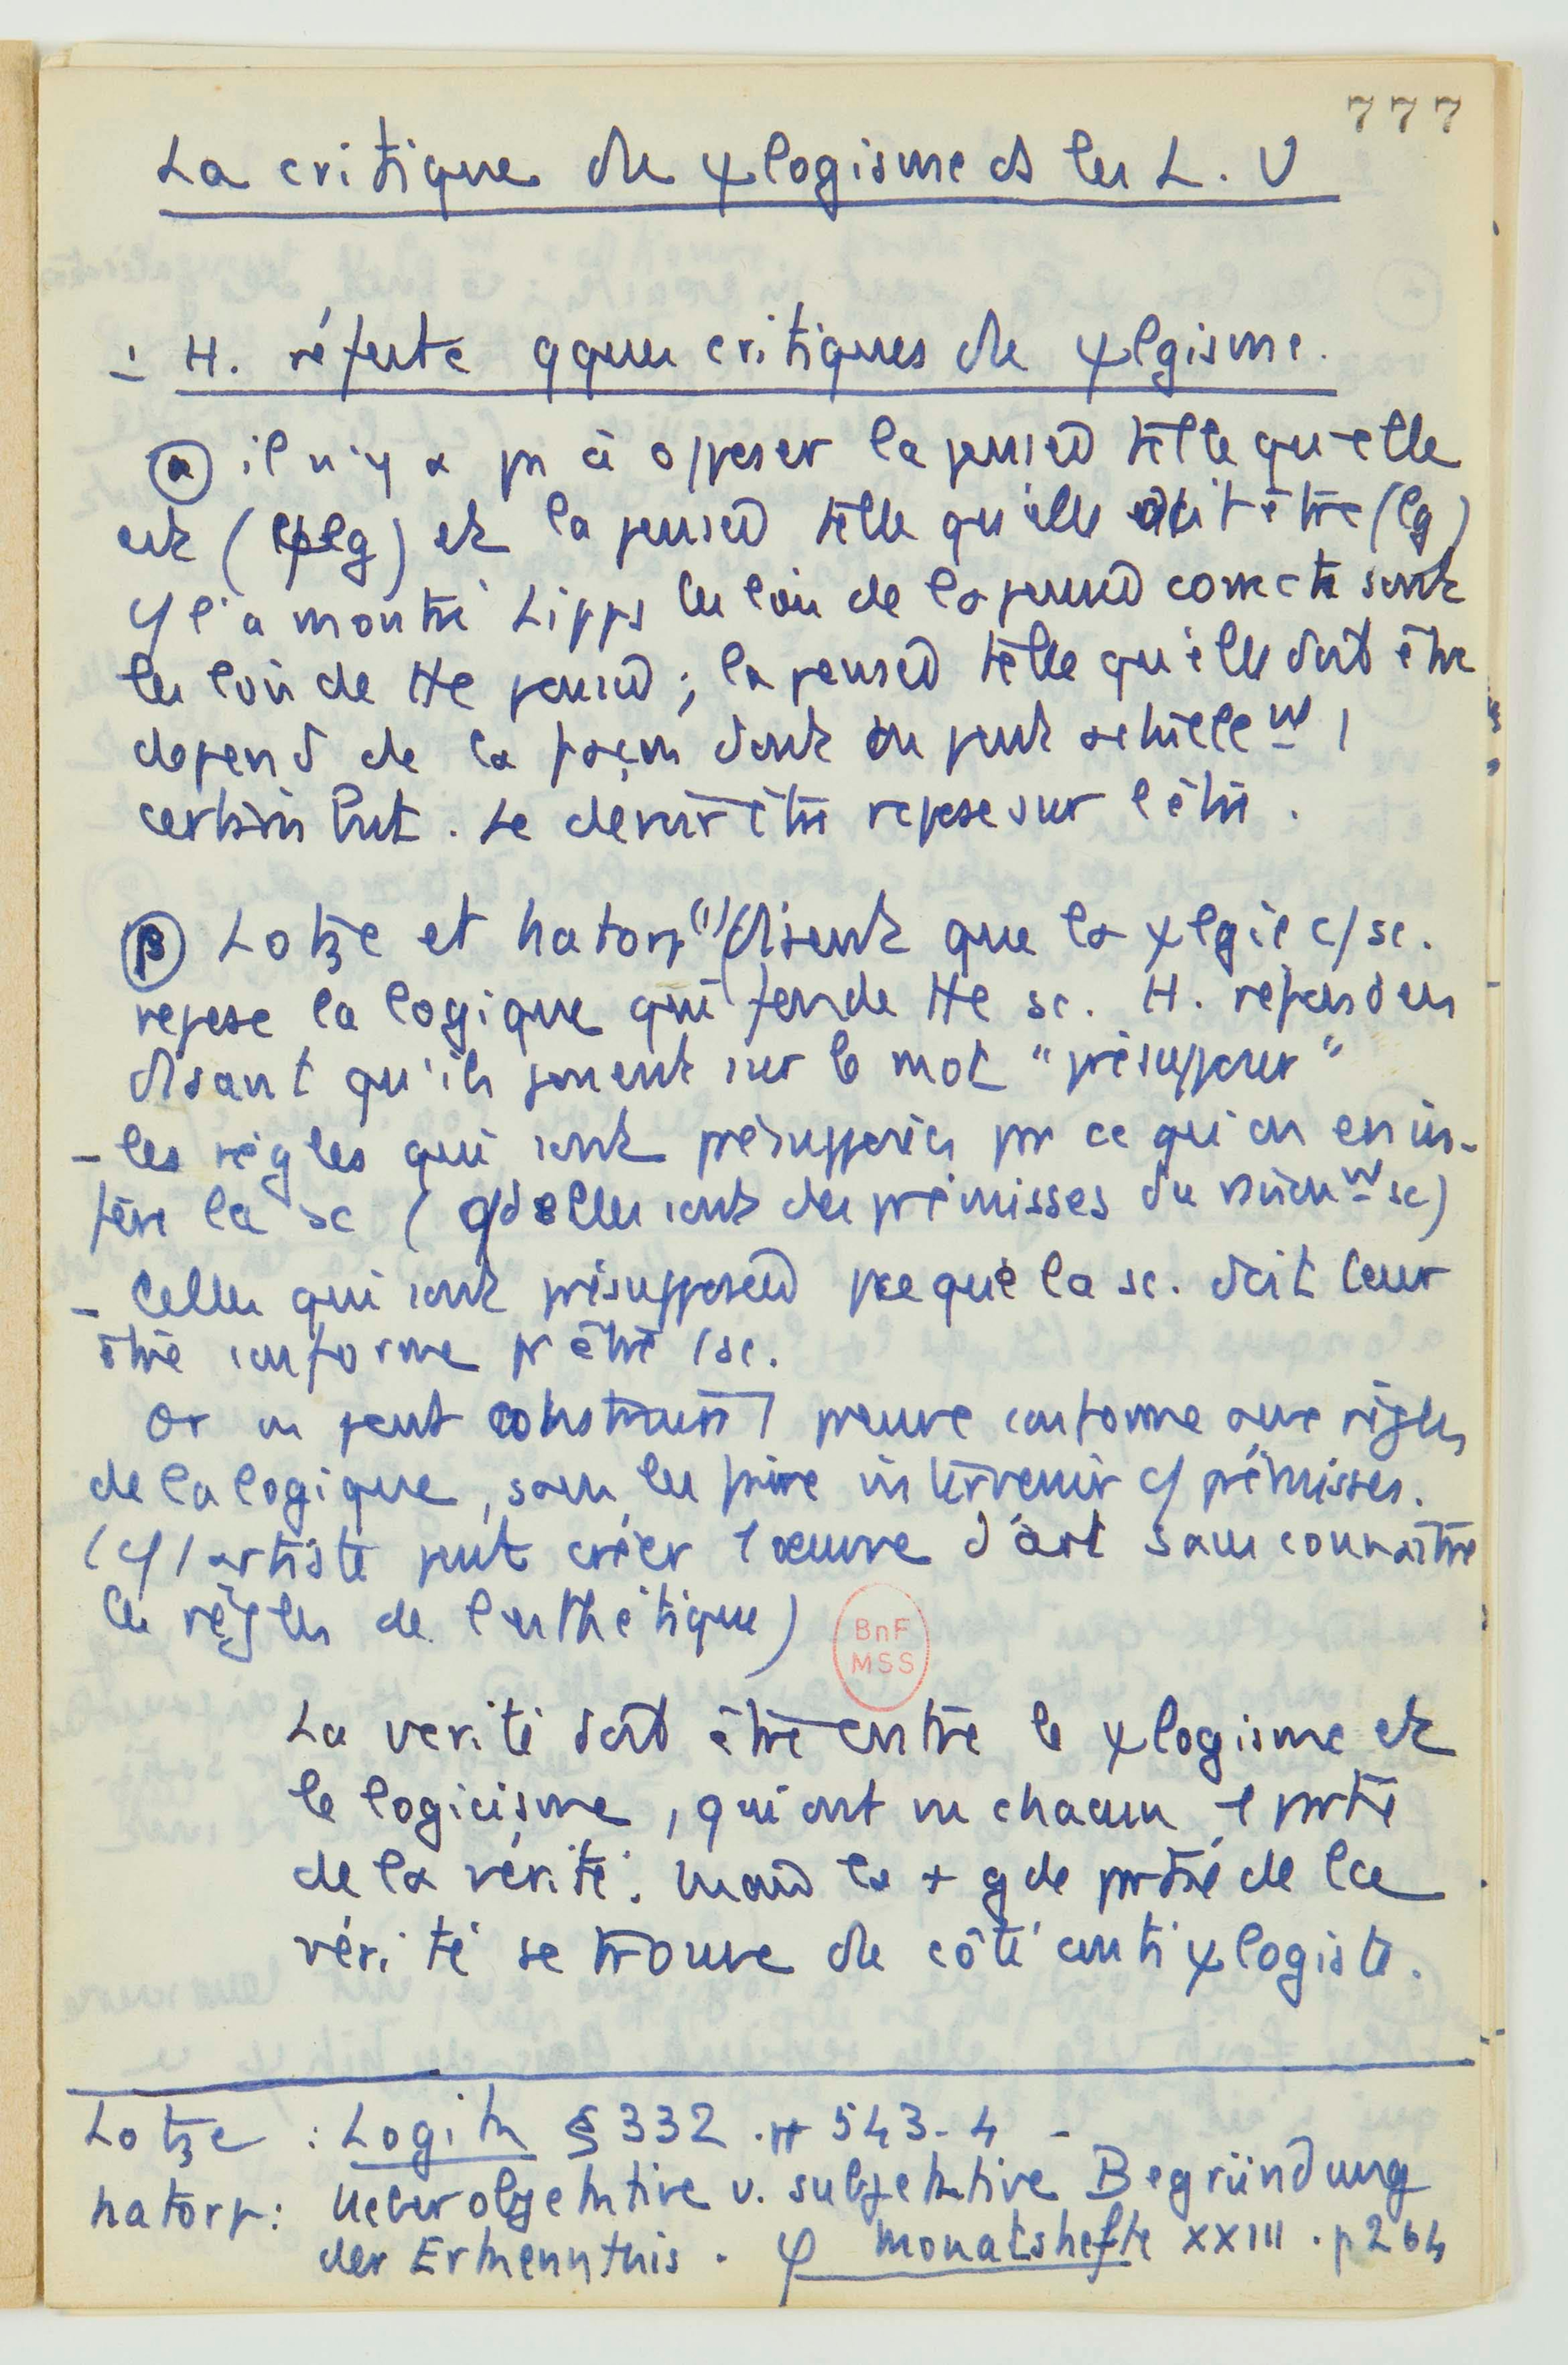 777
La critique du ψlogisme ds les L. U
- H. réfute qques critiques du ψlgisme.
(α) il n'y a pas à opposer la pensée telle qu'elle
est (ψlg) et la pensée telle qu'elle doit être (lg)
Cf l'a montré Lipps les lois de la pensée correcte sont
les lois de tte pensée ; la pensée telle qu'elle doit être
dépend de la façon dont on peut
certain but. Le devoir être repose sur l'être.
(β) Lotze et Natorp (1) disent que la ψlgie c/ sc.
repose la logique qui fonde tte sc. H. répond en
disant qu'ils jouent sur le mot "présupposer"
- les règles qui sont présupposées pr ce qu'on en in-
fère la sc (qd elles sont des prémisses du sc)
- Celles qui sont présupposées pce que la sc. doit leur
être conforme pr être 1 sc.
Or on peut construire 1 preuve conforme aux règles
de la logique, sans les faire intervenir c/ prémisses.
(c/ 1 artiste peut créer 1 œuvre d'art sans connaître
les règles de l'esthétique)
BnF
MSS
La vérité doit être entre le ψlogisme et
le logicisme, qui ont vu chacun 1 prtie
de la vérité. Mais la + gde prtie de la
vérité se trouve du côté antiψlogiste.
Lotze : Logik § 332 . pp 543-4 -
Natorp : Ueber objektive u. subjektive Begründung
der Erkenntnis . φ Monatshefte XXIII . p 264